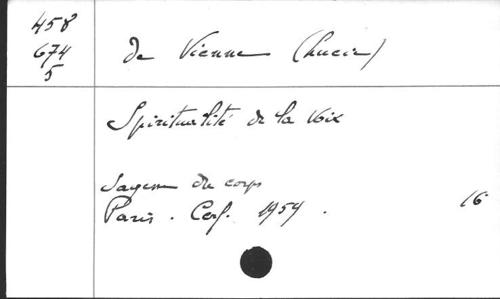 458
674
5
de Vienne (Lucie)
Spiritualité de la Voix
Sagesse du corps
Paris. Cerf. 1959.
16